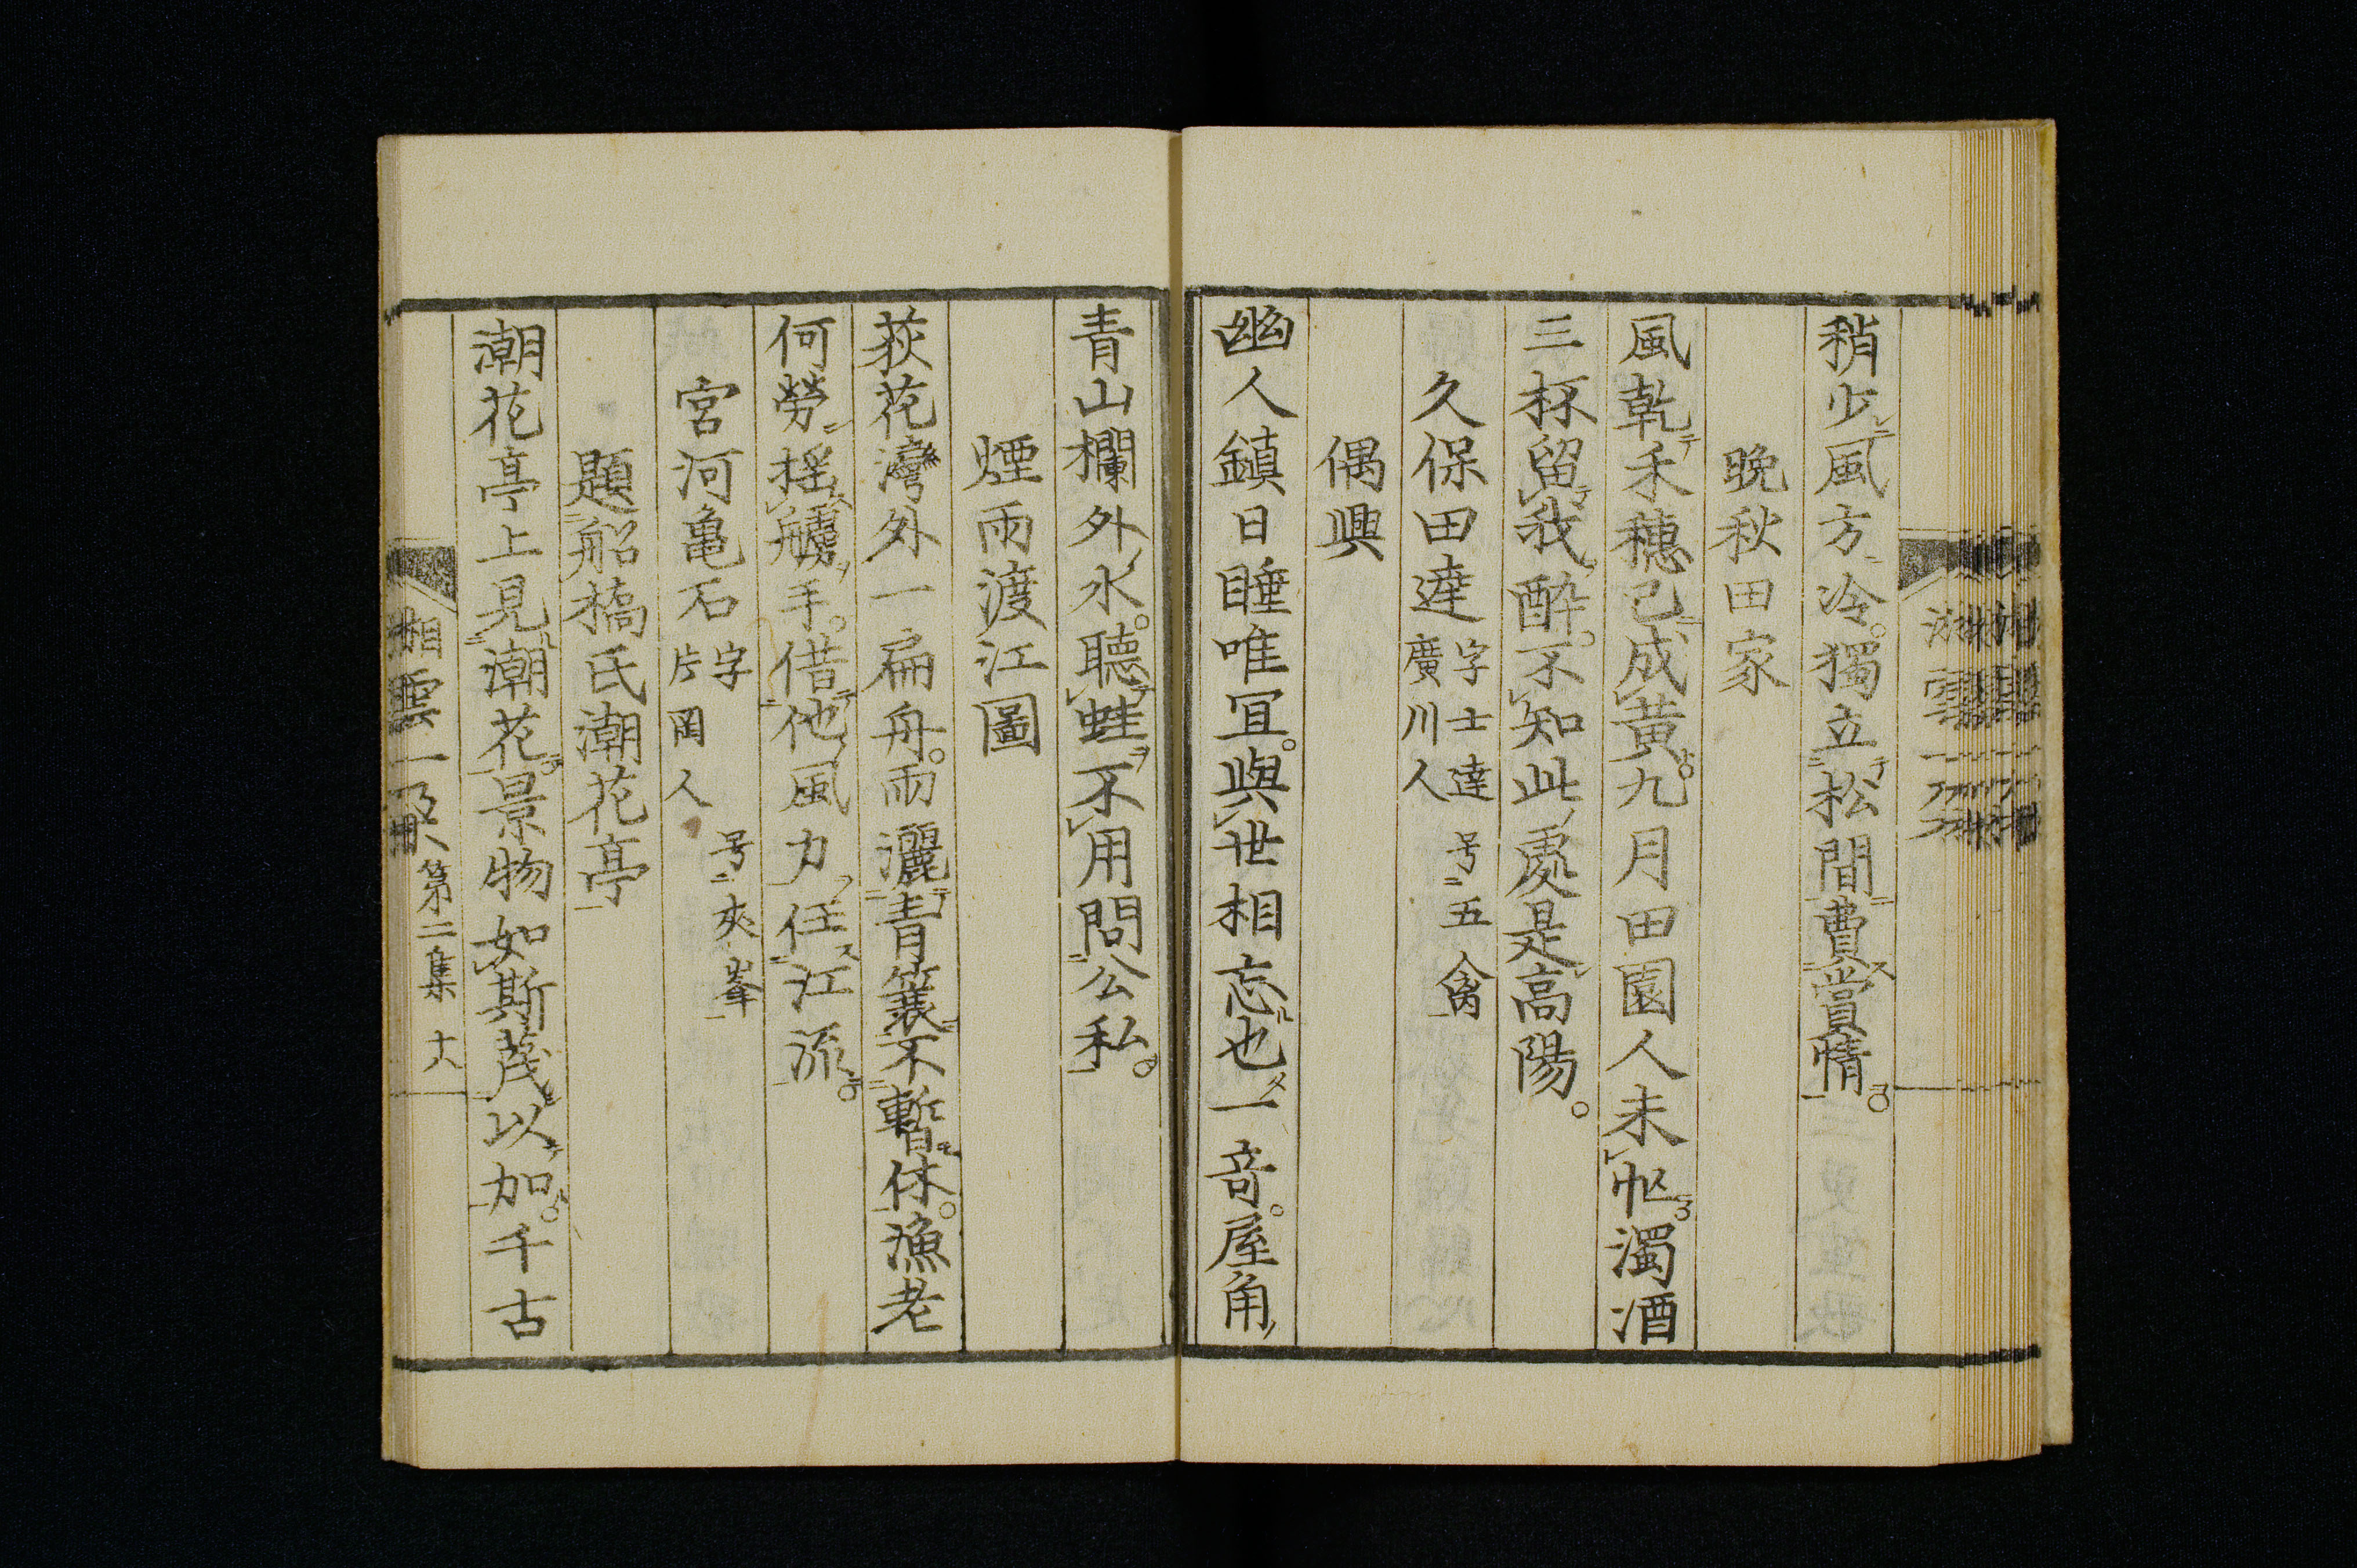 稍少風方冷。獨立松間費賞情。
晩秋田家
風乾禾穗已成黄。九月田園人未忙。濁酒
三杯留我酔。不知此處是高陽。
久保田達 字士達 廣川人 号五禽
偶興
幽人鎮日睡唯宜。與世相忘也一奇。屋角
青山欄外水。聽蛙不用問公私。
煙雨渡江圖
荻花灣外一扁舟。雨灑青簑不暫休。漁老
何勞揺艣手。借他風力任江流。
宮河亀石 字 片岡人 号夾峯
題船橋氏潮花亭
潮花亭上見潮花。景物如斯茂以加。千古
第二集 十八